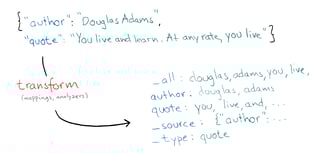 {"author": "Douglas Adams",
"quote": "You live and learn. At any rate, you live"}
transform
(mappings, analyzers)
_all: douglas, adams, you, live,
author: douglas, adams
quote: you, live, and, ...
_source: {"author": ...
_type: quote